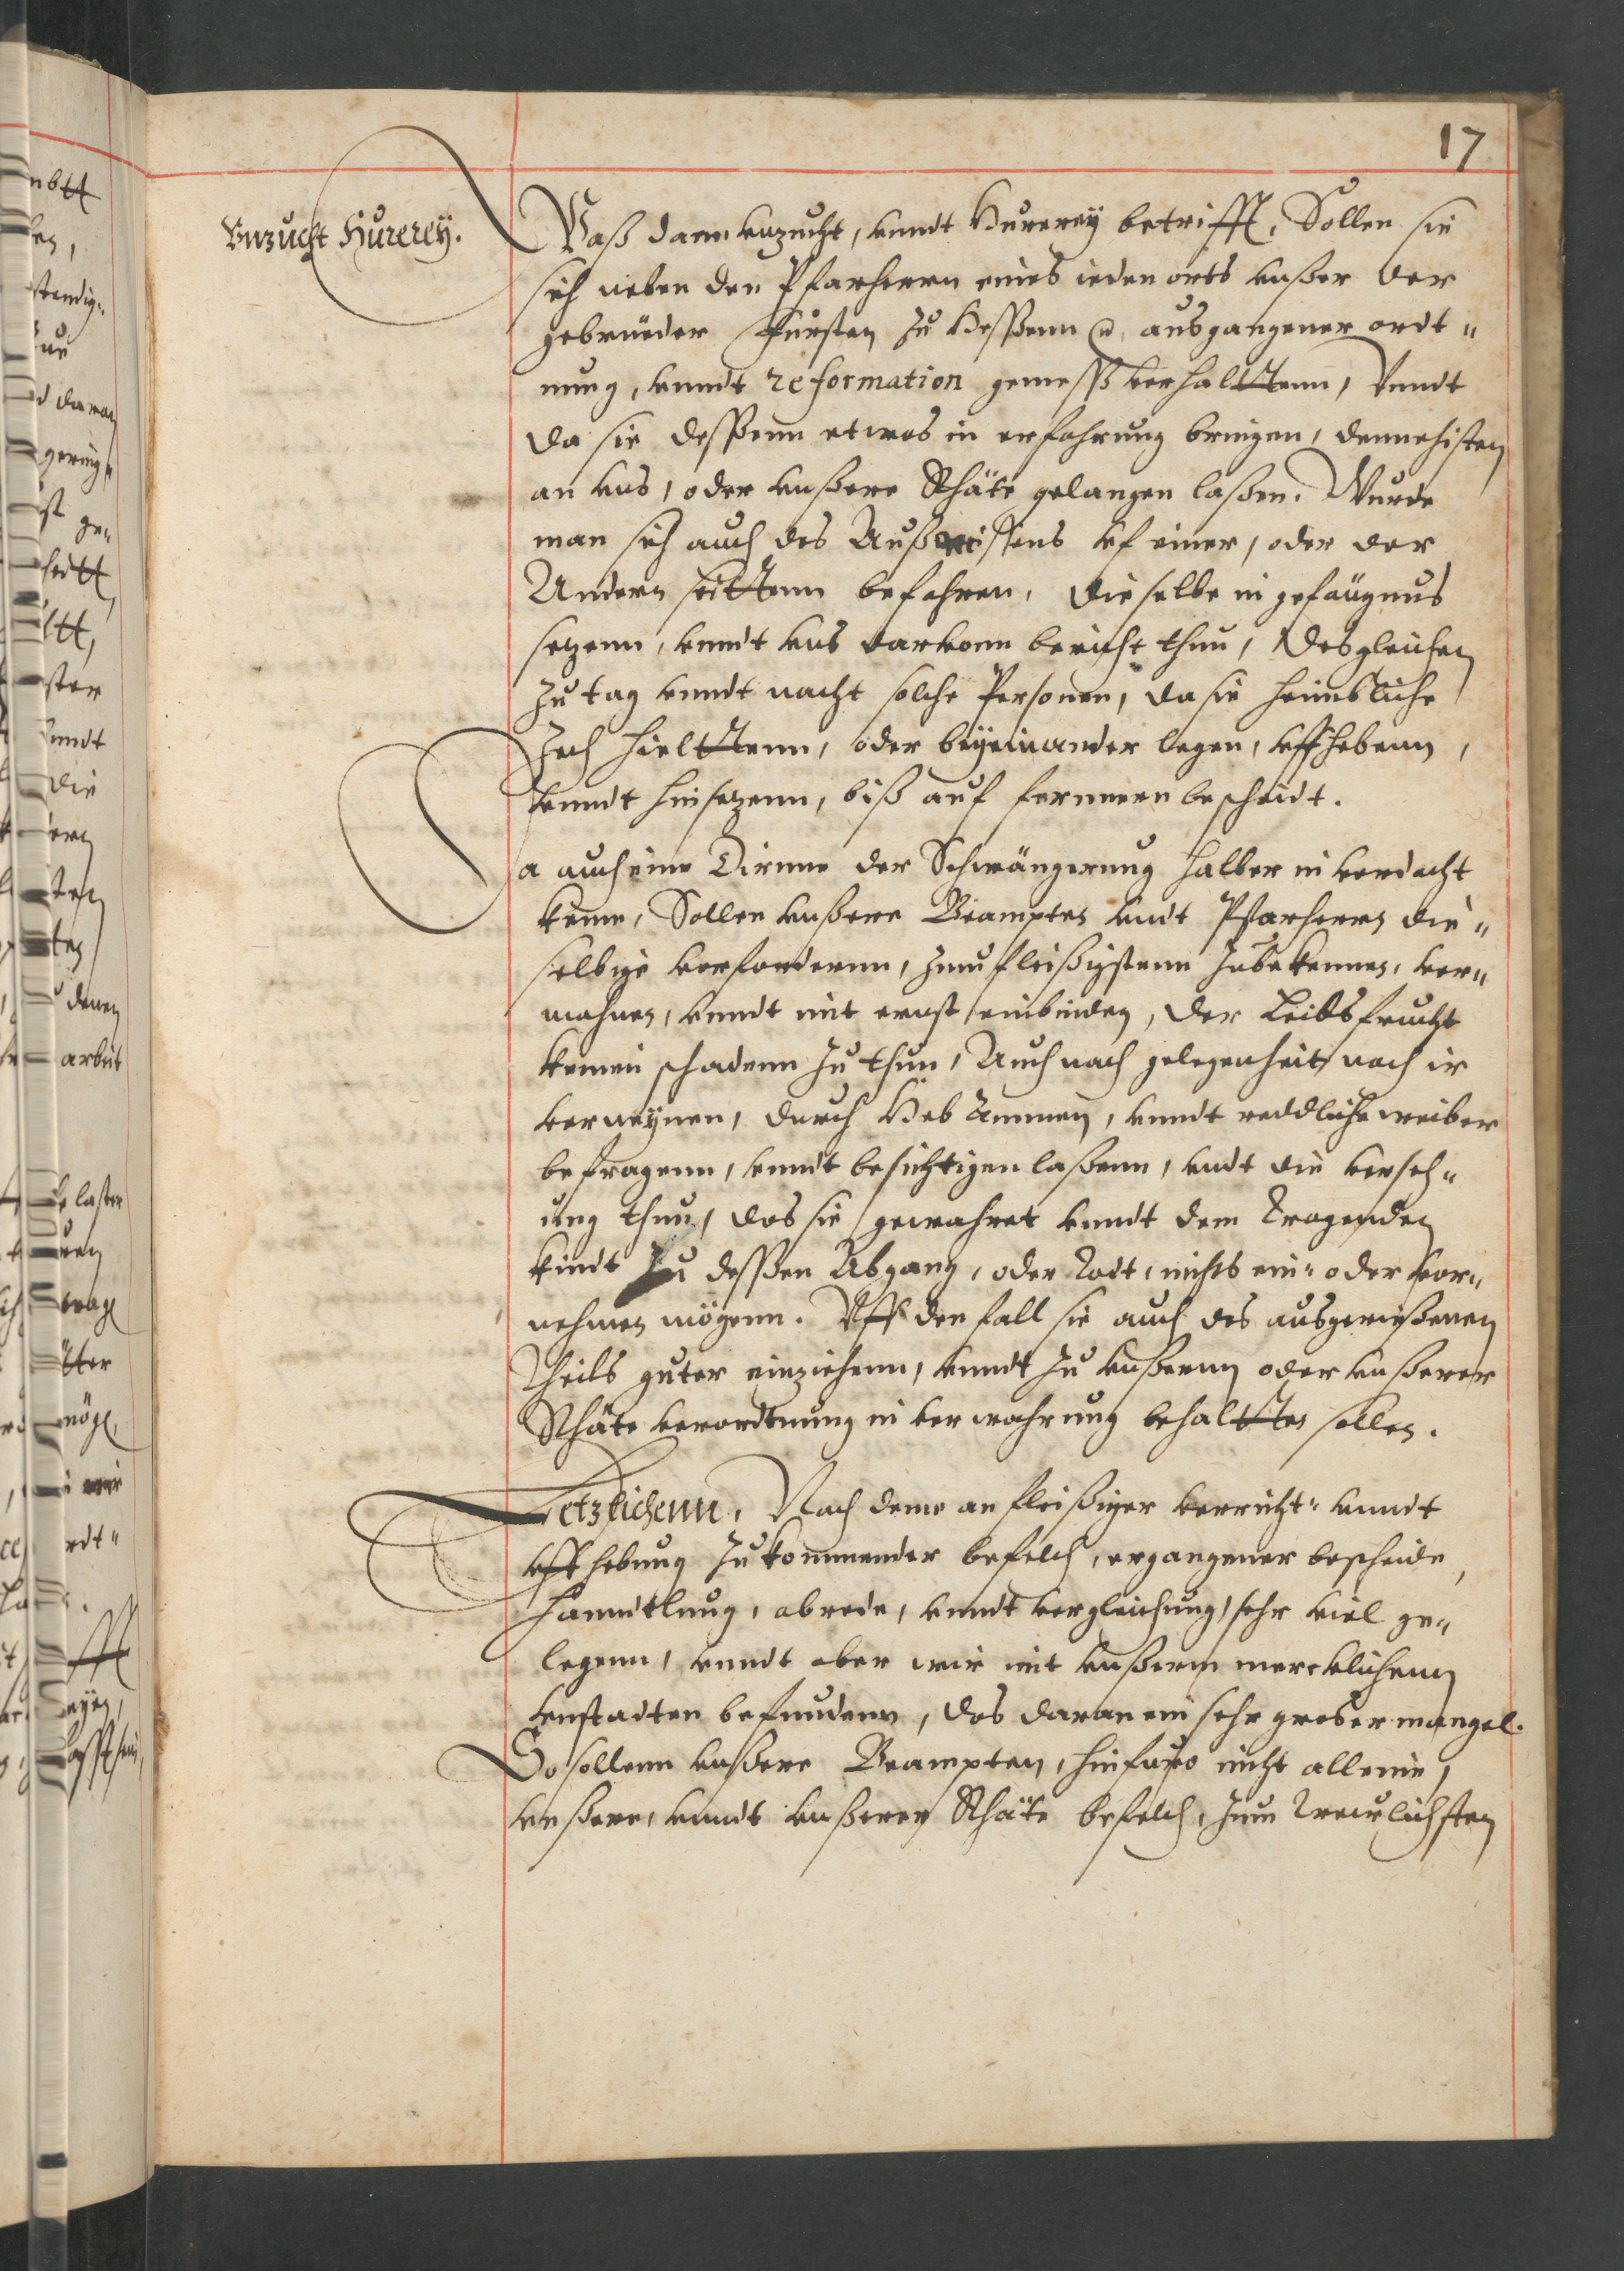 17
Vnzucht Hurerey.
Waß dann vnzucht, vnndt Hurerey betrifft, Sollen sie
sich neben den Pfarherrn eines ieden orts vnßer der
gebrüeder Fürsten zu Heßenn ausgangener ordt„
nung, vnndt reformation gemeß verhalttenn, Vnndt
da sie deßenn etwas in erfahrung bringen, demnehisten
an vns, oder vnßere Rhäte gelangen laßen. Wurde
man sich auch des Außreißens vf einer, oder der
Andern seittenn befahren, dieselbe in gefängnus
setzenn, vnndt vns daruonn bericht thun, Desgleichen
zu tag vnndt nacht solche Personen, da sie heimbliche
Zech hielttenn, oder beyeinander legen, vffhebenn,
vnndt hinsetzenn, biß auf fernnern bescheidt.
Da auch eine Dirnne der Schwängerung halber in verdacht
keme, Sollen vnßere Beampten vndt Pfarherrn die„
selbige verfordernn, zum fleißigstenn zubekennen, ver„
mahnen, vnndt mit ernst einbinden, der Leibsfrucht
keinen schadenn zu thun, Auch nach gelegenheit nach ir
verneynen, durch Heb Ammen, vnndt reddliche weiber
befragenn, vnndt besichtigen laßenn, vndt die verseh„
ung thun, das sie gewahret vnndt dem Tragenden
kindt zu deßen Abgang, oder Todt, nichts ein- oder vor„
nehmen mögenn. Vff den fall sie auch des ausgewißenen
Theils guter einziehenn, vnndt zu vnßernn oder vnßerer
Rhäte verordtnung in verwahrung behaltten sollen.
Letzlichenn, Nach deme an fleißiger verricht- vnndt
vffhebung zukommender befelch, ergangener bescheide,
Hanndtlung, abrede, vnndt vergleichung, sehr viel ge„
legenn, vnndt aber wir mit vnßerm mercklichenn
vnstadten befundenn, das daran ein sehr großer mangel.
So sollenn vnßere Beampten, hinfuro nicht alleine,
vnßere, vnndt vnßerer Rhäte befelch, zum Treulichsten